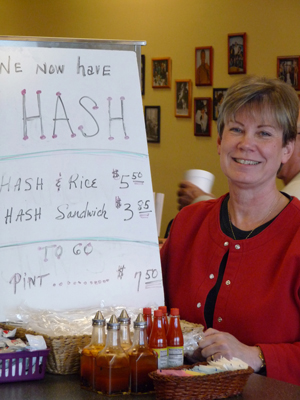 We now have
HASH
HASH & Rice $5.50
HASH Sandwich $3.85
TO GO
PINT........... $7.50